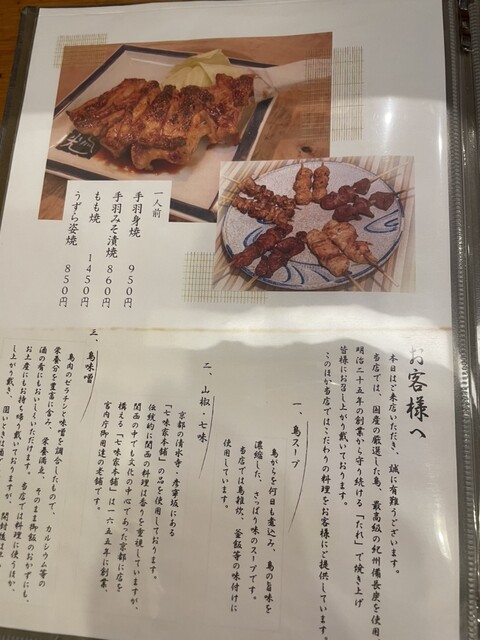 一人前
手羽身焼 950円
手羽みそ漬焼 860円
もも焼 1450円
うずら姿焼 850円
お客様へ
本日はご来店いただき、誠に有難うございます。
当店では、国産の厳選した鳥、最高級の紀州備長炭を使用
明治二十五年の創業から守り続ける「たれ」で焼き上げ
皆様にお召し上がり戴いております。
このほか当店ではこだわりの料理をお客様にご提供しています。
一、鳥スープ
鳥がらを何日も煮込み、鳥の旨味を
濃縮した、さっぱり味のスープです。
当店では鳥雑炊、釜飯等の味付けに
使用しています。
二、山椒・七味
京都の清水寺・産寧坂にある
「七味家本舗」の品を使用しております。
伝統的に関西の料理は香りを重視していますが、
関西の中でも文化の中心であった京都に店を
構える「七味家本舗」は一六五五年に創業、
宮内庁御用達の老舗です。
三、鳥味噌
鳥肉のゼラチンと味噌を調合したもので、カルシウム等の
栄養分を豊富に含み、栄養満点、そのまま御飯のおかずにも、
酒の肴にもおいしくいただけます。当店では料理に使うほか、
お土産にもお持ち帰り戴いておりますが、開封後は
し上がり戴き、固いときは